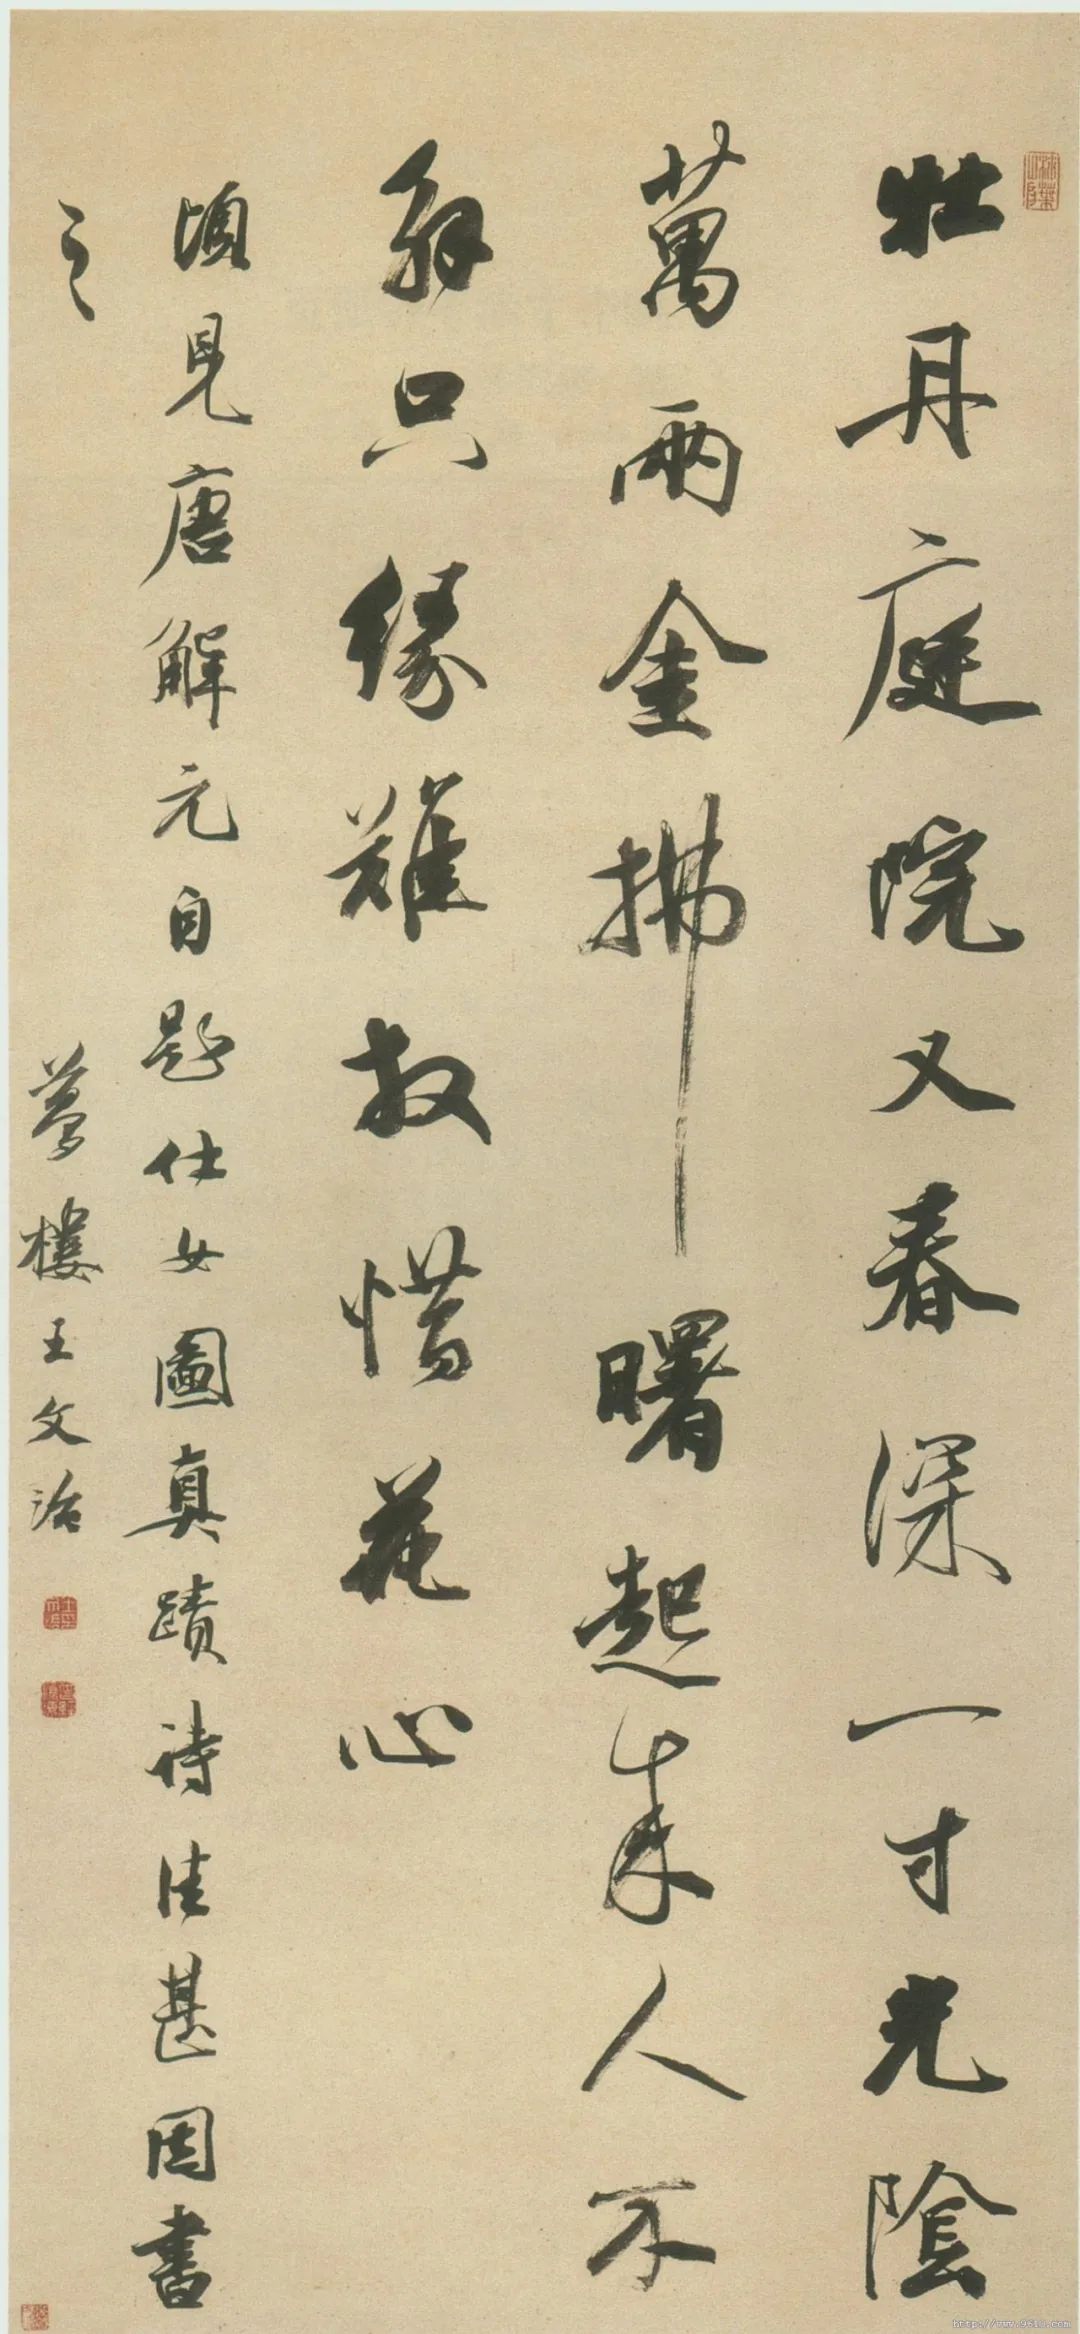 牡丹庭院又春深一寸光陰
萬兩金拂曙起來人不
解只緣難放惜花心
頃見唐解元自題仕女圖真蹟詩佳甚因書
之
夢樓王文治
http://www.9610.com